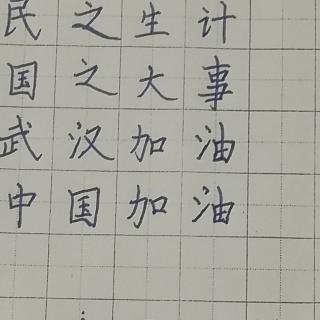 民之生计
国之大事
武汉加油
中国加油